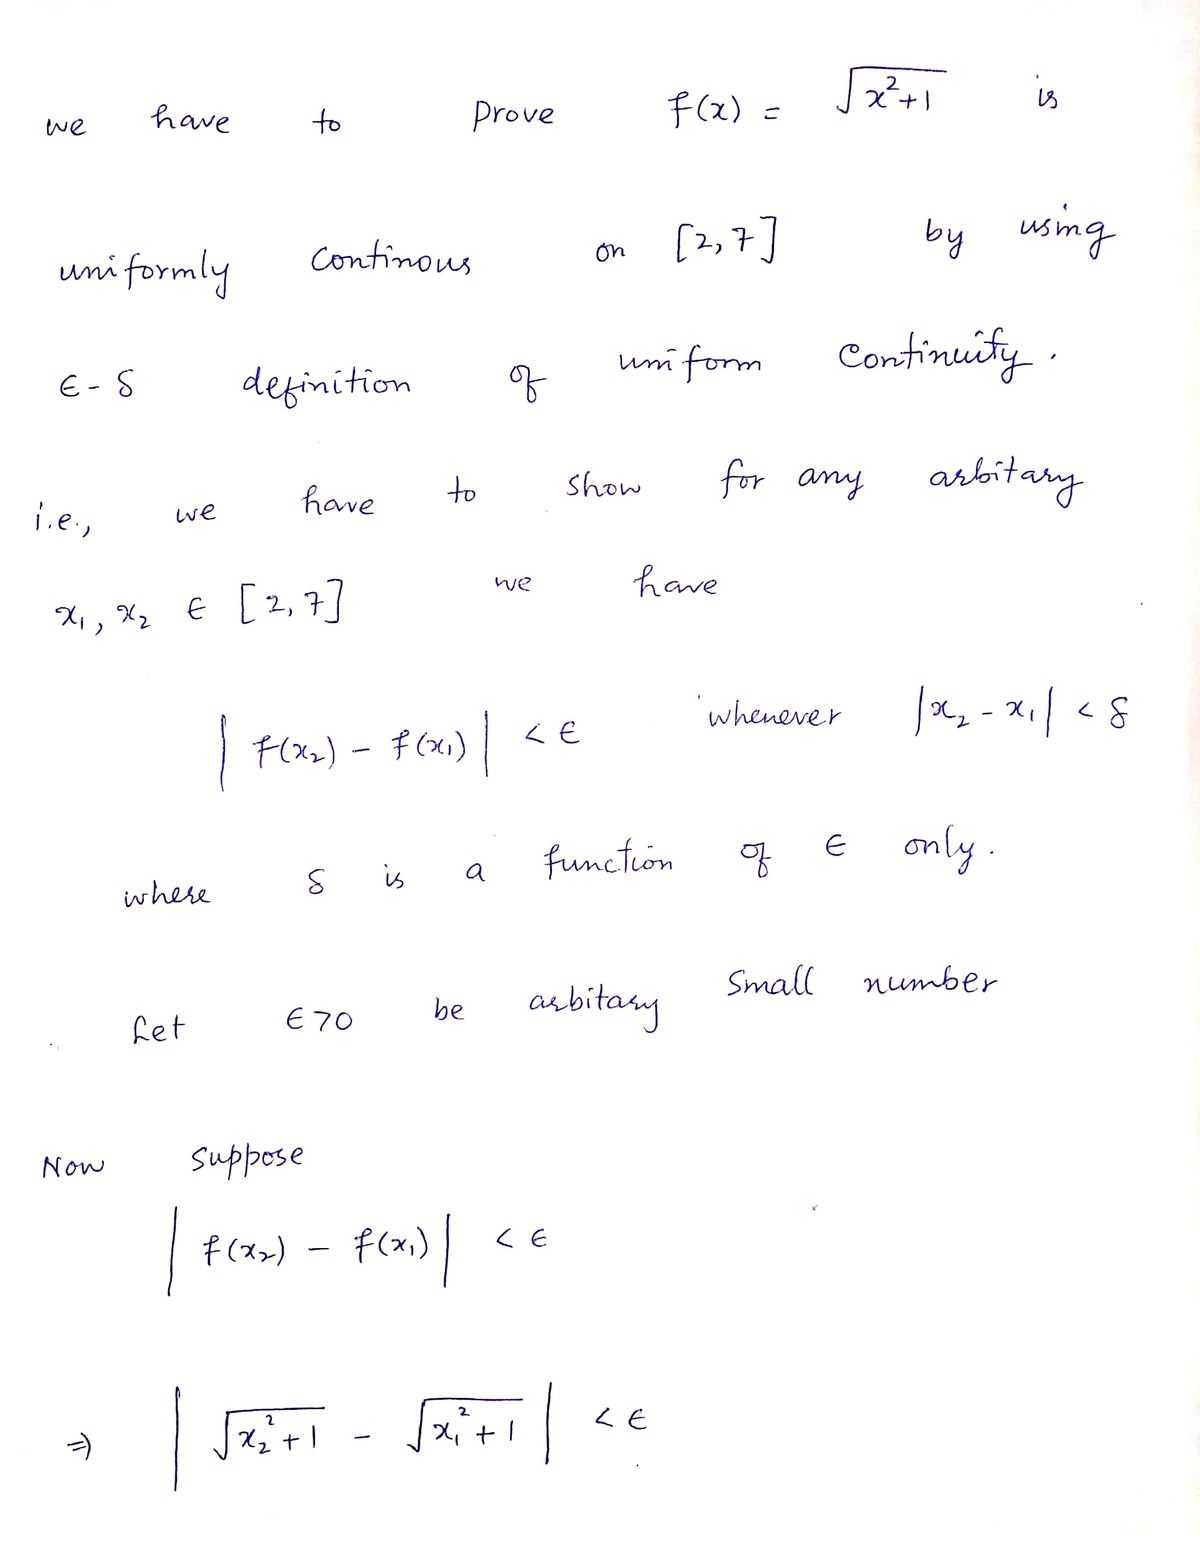 we have to prove f(x) = √(x²+1) is
uniformly continous on [2,7] by using
ϵ-δ definition of uniform continuity.
i.e., we have to show for any arbitary
x₁, x₂ ∈ [2,7] we have
| f(x₂) - f(x₁) | < ϵ whenever |x₂ - x₁| < δ
where δ is a function of ϵ only.
Let ϵ>0 be arbitary small number
Now suppose
| f(x₂) - f(x₁) | < ϵ
⇒ | √(x₂²+1) - √(x₁²+1) | < ϵ